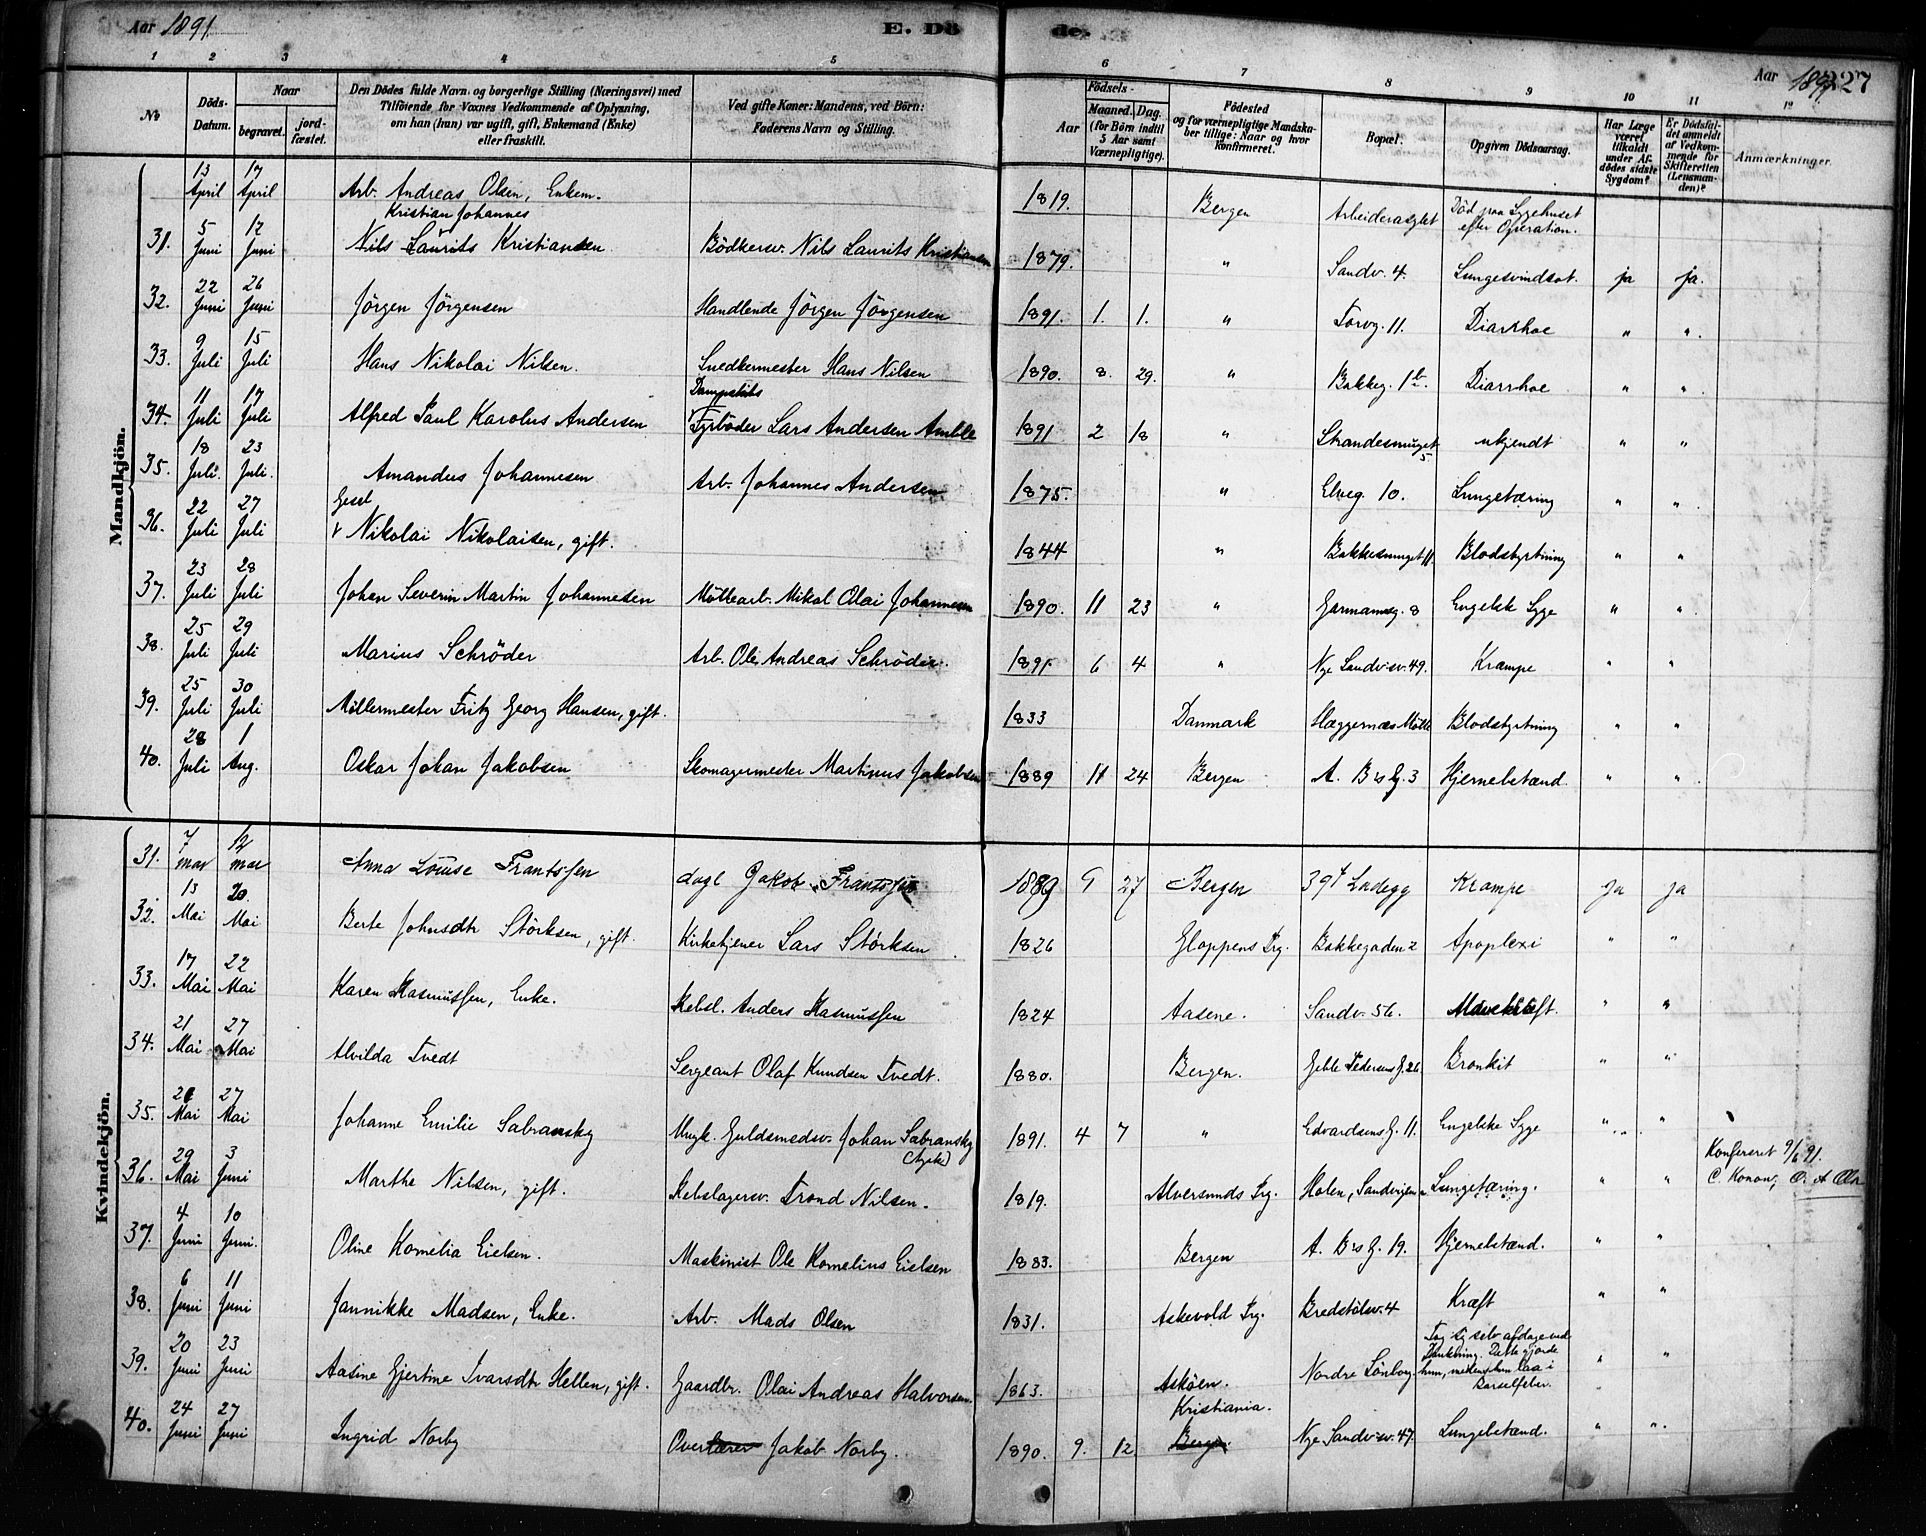 Aar 1891. E. Dö de. Aar 1891. 227
1 2 3 4 5 6 7 8 9 10 11 12
No
Döds-Datum.
Naar
begravet.
jord-fæstet.
Den Dödes fulde Navn og borgerlige Stilling (Næringsvei) med
Tilföiende for Voxnes Vedkommende af Oplysning,
om han (hun) var ugift, gift, Enkemand (Enke)
eller fraskilt.
Ved gifte Koner: Mandens, ved Börn:
Faderens Navn og Stilling.
Födsels-
Aar
Maaned. Dag.
(for Börn indtil
5 Aar samt
Værnepligtige).
Födested
og for værnepligtige Mandska-
ber tillige: Naar og hvor
konfirmeret.
Bopæl.
Opgiven Dödsaarsag.
Har Læge
været
tilkaldt
under Af-
dödes sidste
Sygdom?
Er Dödsfal-
det anmeldt
af Vedkom-
mende for
Skifteretten
(Lensman-
den)?
Anmærkninger.
Mandkjön.
13 April 17 April Arb. Andreas Olsen, Enkem. 1819. Bergen Arbeiderasylet Död paa Sygehuset efter Operation.
31. 5 Juni 12 Juni Nils Laurits Kristian Johannes Kristiansen Bödkersv. Nils Laurits Kristiansen 1879. " Sandv. 4. Lungesvindsot. ja ja.
32. 22 Juni 26 Juni Jörgen Jörgensen Handlende Jörgen Jörgensen 1891. 1. 1. " Torvg. 11. Diarrhoe " "
33. 9 Juli 15 Juli Hans Nikolai Nilsen. Snedkermester Hans Nilsen 1890. 8. 29. " Bakkeg. 1b. Diarrhoe " "
34. 11 Juli 17 Juli Alfred Paul Karolus Andersen Dampskibs Fyrböder Lars Andersen Amble 1891 2 18 " Strandesmuget 5. ukjendt " "
35. 18 Juli. 23 Juli. Amandus Johannesen Arb. Johannes Andersen 1875. " Elveg. 10. Lungetæring " "
36. 22 Juli 27 Juli Nikolai Nikolaisen, gift. 1844 " Bakkesmuget 11. Blodstyrtning " "
37. 23 Juli 28 Juli Johan Severin Martin Johannesen Möllearb. Mikal Olai Johannesen 1890. 11 23 " Garmannsg. 8 Engelsk Syge " "
38. 25 Juli 29 Juli Marius Schröder Arb. Ole Andreas Schröder. 1891 6 4 " Nye Sandv.sv. 49. Krampe " "
39. 25 Juli 30 Juli Möllermester Fritz Georg Hansen, gift. 1833 Danmark Hæggernæs Mölle Blodstyrtning " "
40. 28 Juli 1 Aug. Oskar Johan Jakobsen Skomagermester Martinus Jakobsen 1889 11 24 Bergen A. B's G. 3 Hjernebetænd. " "
Kvindekjön.
31. 7 mar 12 mar Anna Louise Frantssen dagl Jakob Frantssen 1889 9 27 Bergen 39 Ladegg Krampe ja ja
32. 13 Mai 20. Mai Berte Johnsdtr Störksen, gift. Kirketjener Lars Störksen 1826 Gloppens Prg. Bakkegaden 2 Apoplexi " "
33. 17 Mai 22 Mai Karen Rasmussen, Enke. Rebsl. Anders Rasmussen 1824 Aasene. Sandv. 56. Mavekræft. " "
34. 21 Mai 27 Mai Alvilda Tvedt Sergeant Olaf Knudsen Tvedt. 1880. Bergen. Geble Pedersens G. 26 Bronkit " "
35. 21 Mai 27 Mai Johanne Emilie Sabransky Ungk. Guldsmedsv. Johan Sabransky 1891. 4 7 " Edvardsens G. 11. Engelske Syge " "
36. 29 Mai 3 Juni Marthe Nilsen, gift. Rebslagersv. Trond Nilsen. 1819. Alversunds Prg. Holen, Sandvigen Lungetæring. " " Konfereret 9/6 91. C. Konow,
37. 4 Juni 10 Juni. Oline Kornelia Eielsen. Maskinist Ole Kornelius Eielsen 1883. Bergen A. B's G. 19. Hjernebetænd. " "
38. 6 Juni 11 Juni Jannikke Madsen, Enke. Arb. Mads Olsen 1831. Askevold Prg. Bredstölsv. 4 Kræft " "
39. 20 Juni 23 Juni Aasine Gjertine Ivarsdtr Hellen, gift. Gaardbr. Olai Andreas Halvorsen. 1863. Asköen. Nordre Tog sig selv afdage ved Drukning. Dette gjorde hun, medens hun laa i Barselfeber. " "
40. 24 Juni 27 Juni Ingrid Norby Overlærer Jakob Norby. 1890. 9. 12 Kristiania. Bergen. Nye Sandv.sv. 47. Lungebetænd. " "